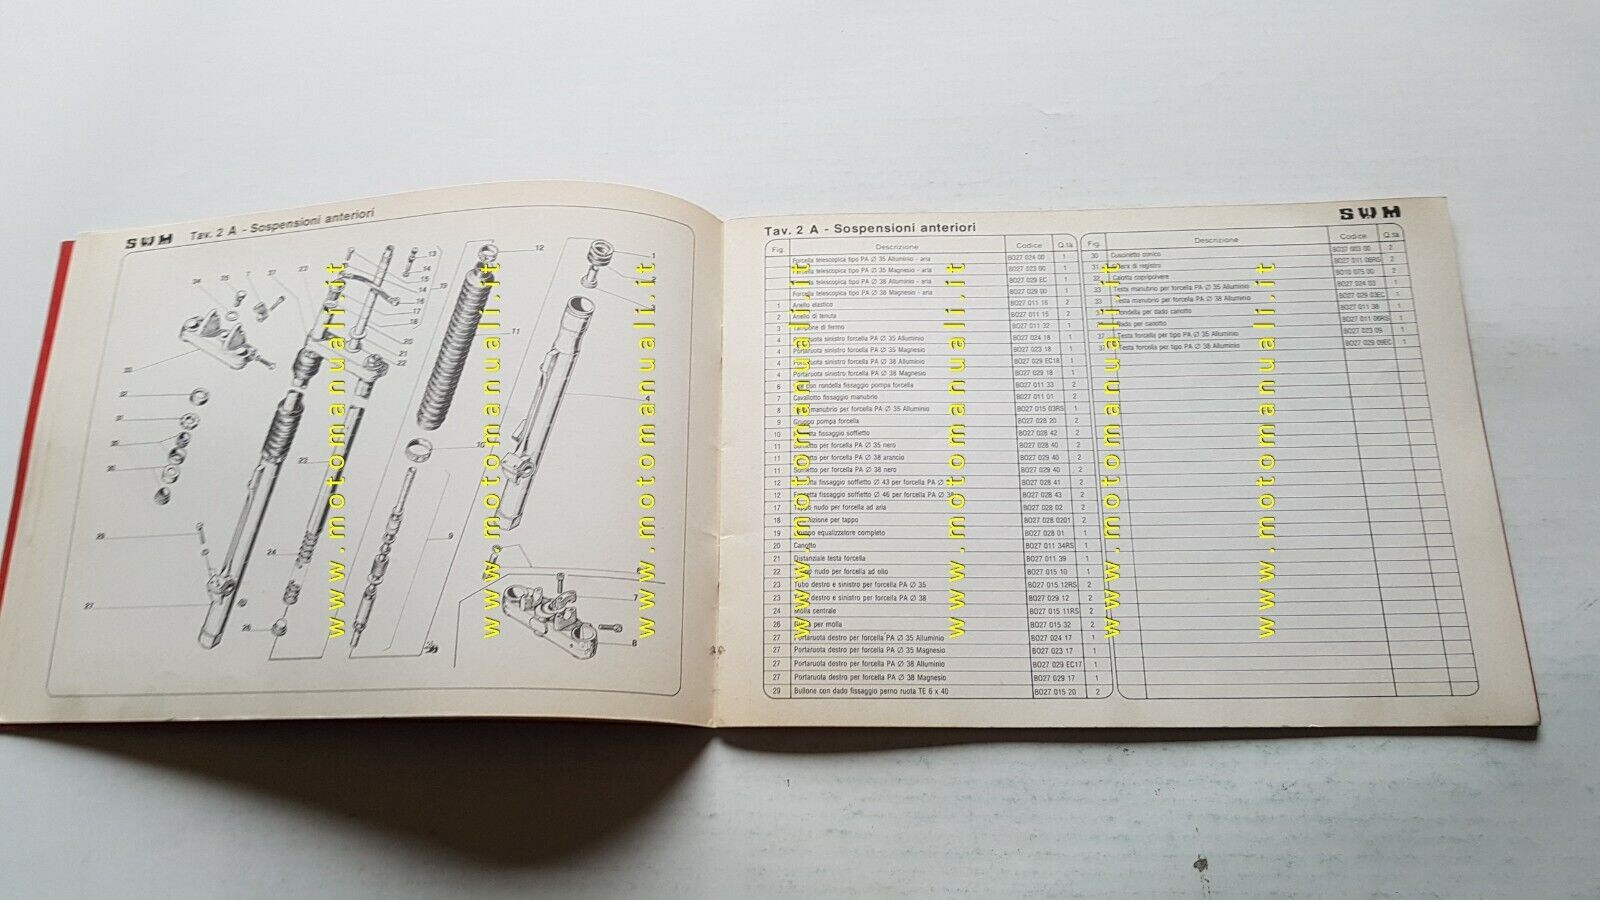 SWM Tav. 2 A - Sospensioni anteriori
www.motomanuali.it
www.motomanuali.it
www.motomanuali.it
SWM
Tav. 2 A - Sospensioni anteriori
Fig. Descrizione Codice Q.tà
Forcella telescopica tipo PA ∅ 35 Alluminio - aria BO27 024 00 1
Forcella telescopica tipo PA ∅ 35 Magnesio - aria BO27 023 00 1
Forcella telescopica tipo PA ∅ 38 Alluminio - aria BO27 029 EC 1
Forcella telescopica tipo PA ∅ 38 Magnesio - aria BO27 029 00 1
1 Anello elastico BO27 011 16 2
2 Anello di tenuta BO27 011 15 2
3 di fermo BO27 011 32 1
4 Portaruota sinistro forcella PA ∅ 35 Alluminio BO27 024 18 1
4 Portaruota sinistro forcella PA ∅ 35 Magnesio BO27 023 18 1
4 Portaruota sinistro forcella PA ∅ 38 Alluminio BO27 029 EC18 1
4 Portaruota sinistro forcella PA ∅ 38 Magnesio BO27 029 18 1
6 con rondella fissaggio pompa forcella BO27 011 33 2
7 Cavallotto fissaggio manubrio BO27 011 01 2
8 manubrio per forcella PA ∅ 35 Alluminio BO27 015 03RS 1
9 Gruppo pompa forcella BO27 028 20 2
10 fissaggio soffietto BO27 028 42 2
11 Soffietto per forcella PA ∅ 35 nero BO27 028 40 2
11 Soffietto per forcella PA ∅ 38 arancio BO27 029 40 2
11 Soffietto per forcella PA ∅ 38 nero BO27 029 40 2
12 fissaggio soffietto ∅ 43 per forcella PA ∅ BO27 028 41 2
12 fissaggio soffietto ∅ 46 per forcella PA ∅ 38 BO27 028 43 2
17 Tappo nudo per forcella ad aria BO27 028 02 2
18 per tappo BO27 028 0201 2
19 Gruppo equalizzatore completo BO27 028 01 1
20 Canotto BO27 011 34RS 1
21 Distanziale testa forcella BO27 011 39 1
22 nudo per forcella ad olio BO27 015 10 1
23 Tubo destro e sinistro per forcella PA ∅ 35 BO27 015 12RS 2
23 Tubo destro e sinistro per forcella PA ∅ 38 BO27 029 12 2
24 Molla centrale BO27 015 11RS 2
26 per molla BO27 015 32 2
27 Portaruota destro per forcella PA ∅ 35 Alluminio BO27 024 17 1
27 Portaruota destro per forcella PA ∅ 35 Magnesio BO27 023 17 1
27 Portaruota destro per forcella PA ∅ 38 Alluminio BO27 029 EC17 1
27 Portaruota destro per forcella PA ∅ 38 Magnesio BO27 029 17 1
29 Bullone con dado fissaggio perno ruota TE 6 x 40 BO27 015 20 2
Fig. Descrizione Codice Q.tà
30 Cuscinetto conico BO27 003 00 2
31 di registro BO27 011 08RS 2
32 Calotta copripolvere 2
33 Testa manubrio per forcella PA ∅ 35 Alluminio BO27 024 03 1
33 Testa manubrio per forcella PA ∅ 38 Alluminio BO27 029 03EC 1
Rondella per dado canotto BO27 011 38 1
Dado per canotto BO27 011 06RS 1
37 Testa forcella per tipo PA ∅ 35 Alluminio BO27 023 09 1
37 Testa forcella per tipo PA ∅ 38 Alluminio BO27 029 09EC 1
www.motomanuali.it
www.motomanuali.it
www.motomanuali.it
www.motomanuali.it